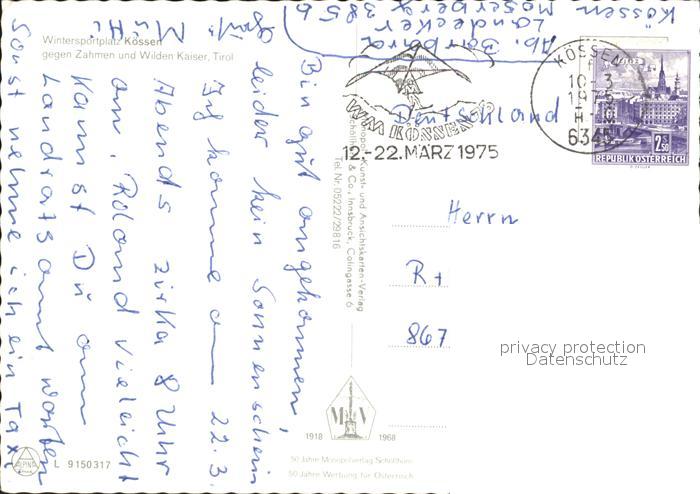 Wintersportplatz Kössen
gegen Zahmen und Wilden Kaiser, Tirol
Ab. Barbara
Landecker
Moserberg 385 b
Kössen
Bin gut angekommen,
leider kein Sonnenschein
Ich komme am 22.3.
Abends zirka 8 Uhr
an. Roland vieleicht
Kannst Du am
Landratsamt warten
Sonst nehme ich ein Taxi
Mutti
KÖSSEN
10.-3.
1975
6345
WM KÖSSEN
12.-22. MÄRZ 1975
2.50
REPUBLIK ÖSTERREICH
Deutschland
Herrn
R+
867
privacy protection
Datenschutz
Kunst- und Ansichtskarten-Verlag
& Co., Innsbruck, Colingasse 6
Tel. Nr. 05222/29816
1918
1968
50 Jahre Monopolverlag Schöllhorn
50 Jahre Werbung für Österreich
ALPINA
L 9150317